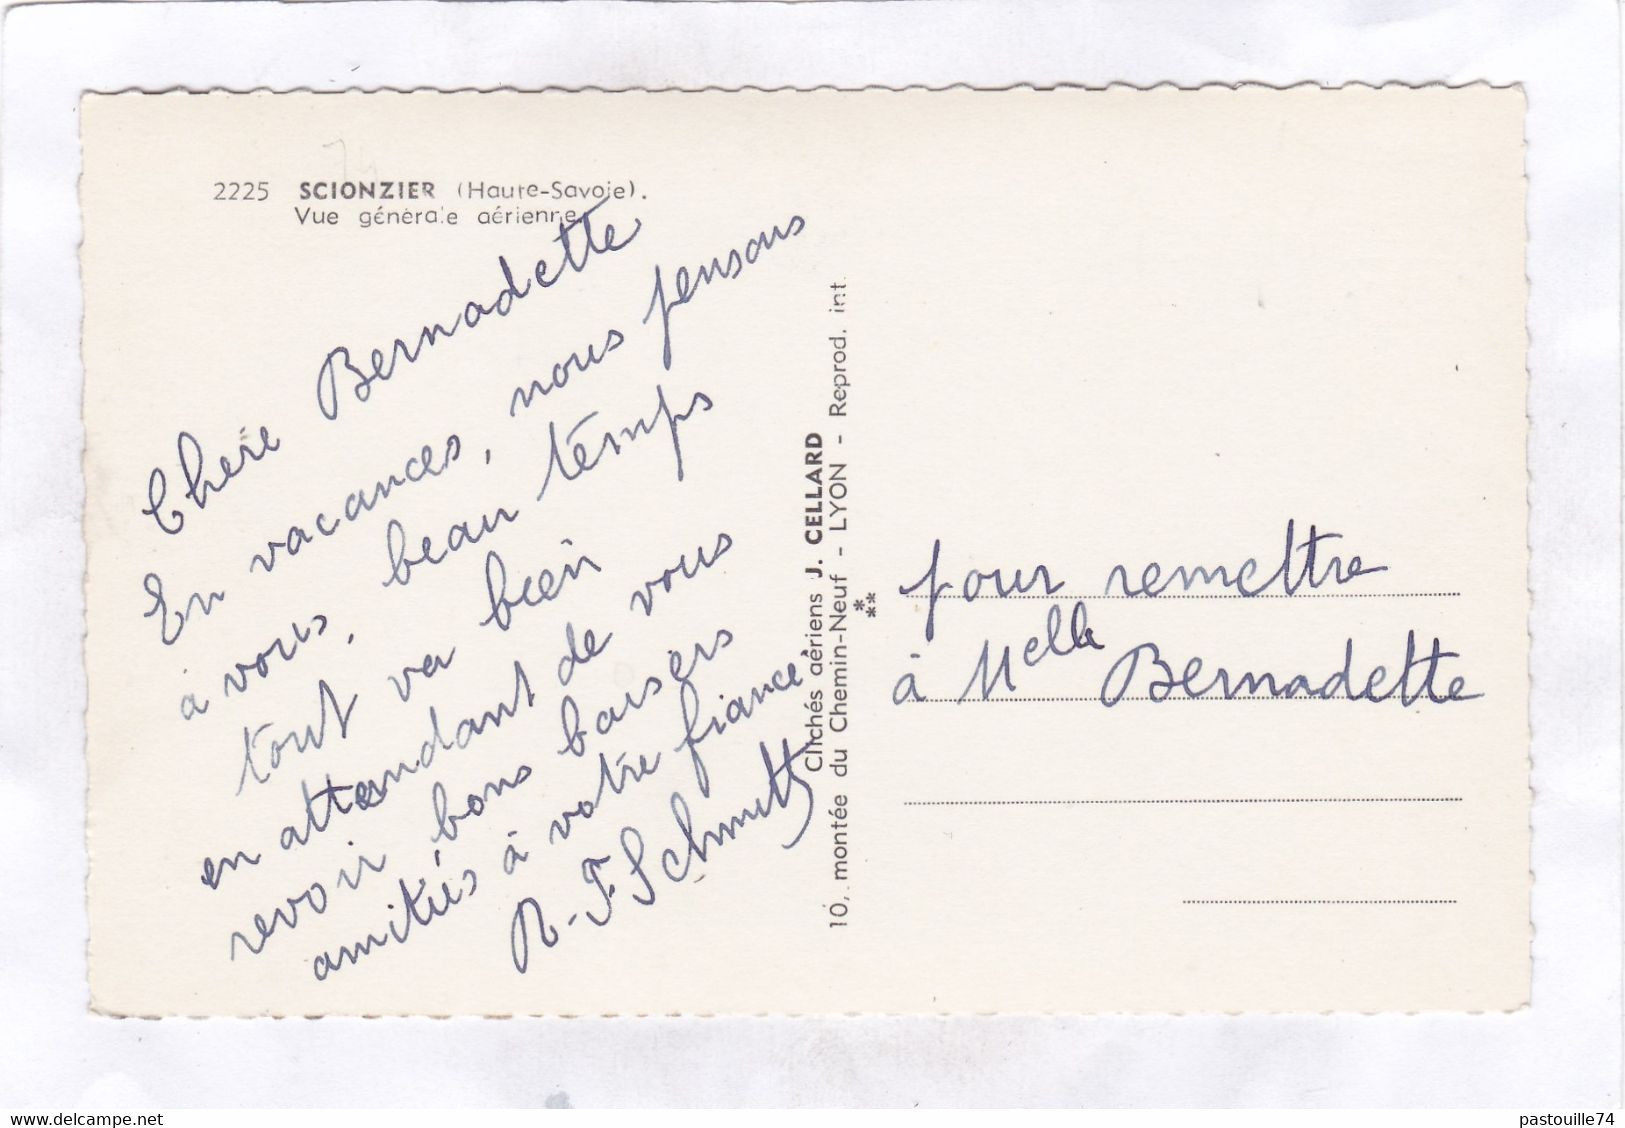 74
2225 SCIONZIER (Haute-Savoie).
Vue générale aérienne
Chère Bernadette
En vacances, nous pensons
à vous, beau temps
tout va bien
en attendant de vous
revoir, bons baisers
amitiés à votre fiancé
R-F Schmitt
Clichés aériens J. CELLARD
10, montée du Chemin-Neuf - LYON - Reprod. int.
pour remettre
à Melle Bernadette
www.delcampe.net
pastouille74